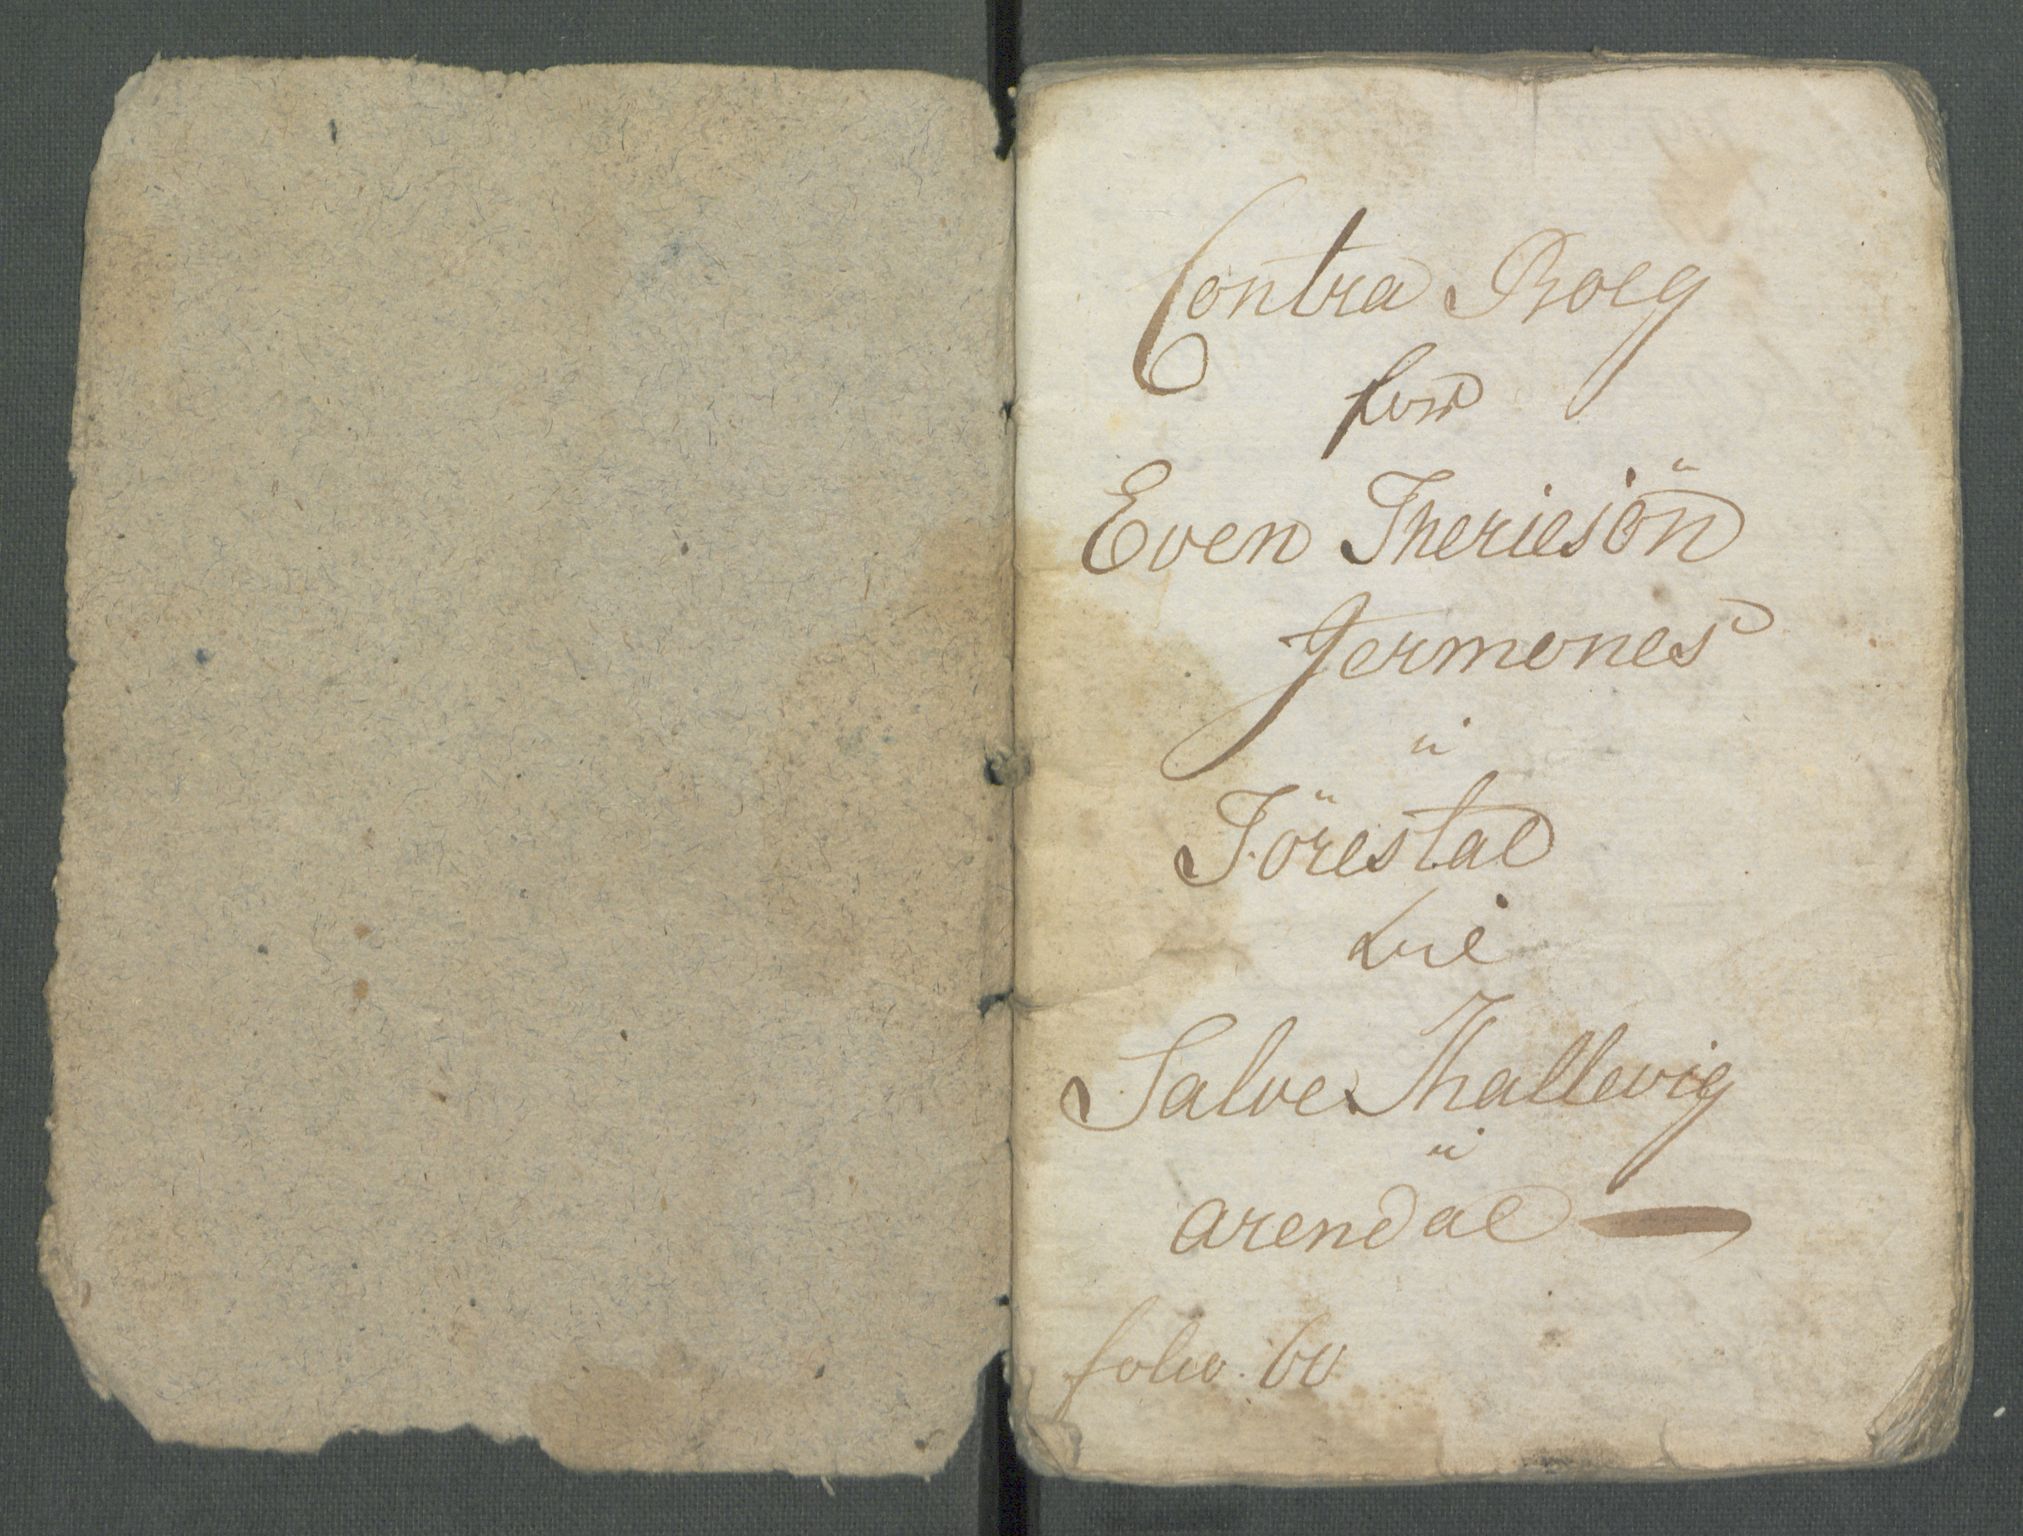 Contra Boeg
for
Even Theriesön
Jermones
ii
Törestal
hil
Salve Thallevig
ii
arendal
folio. 60